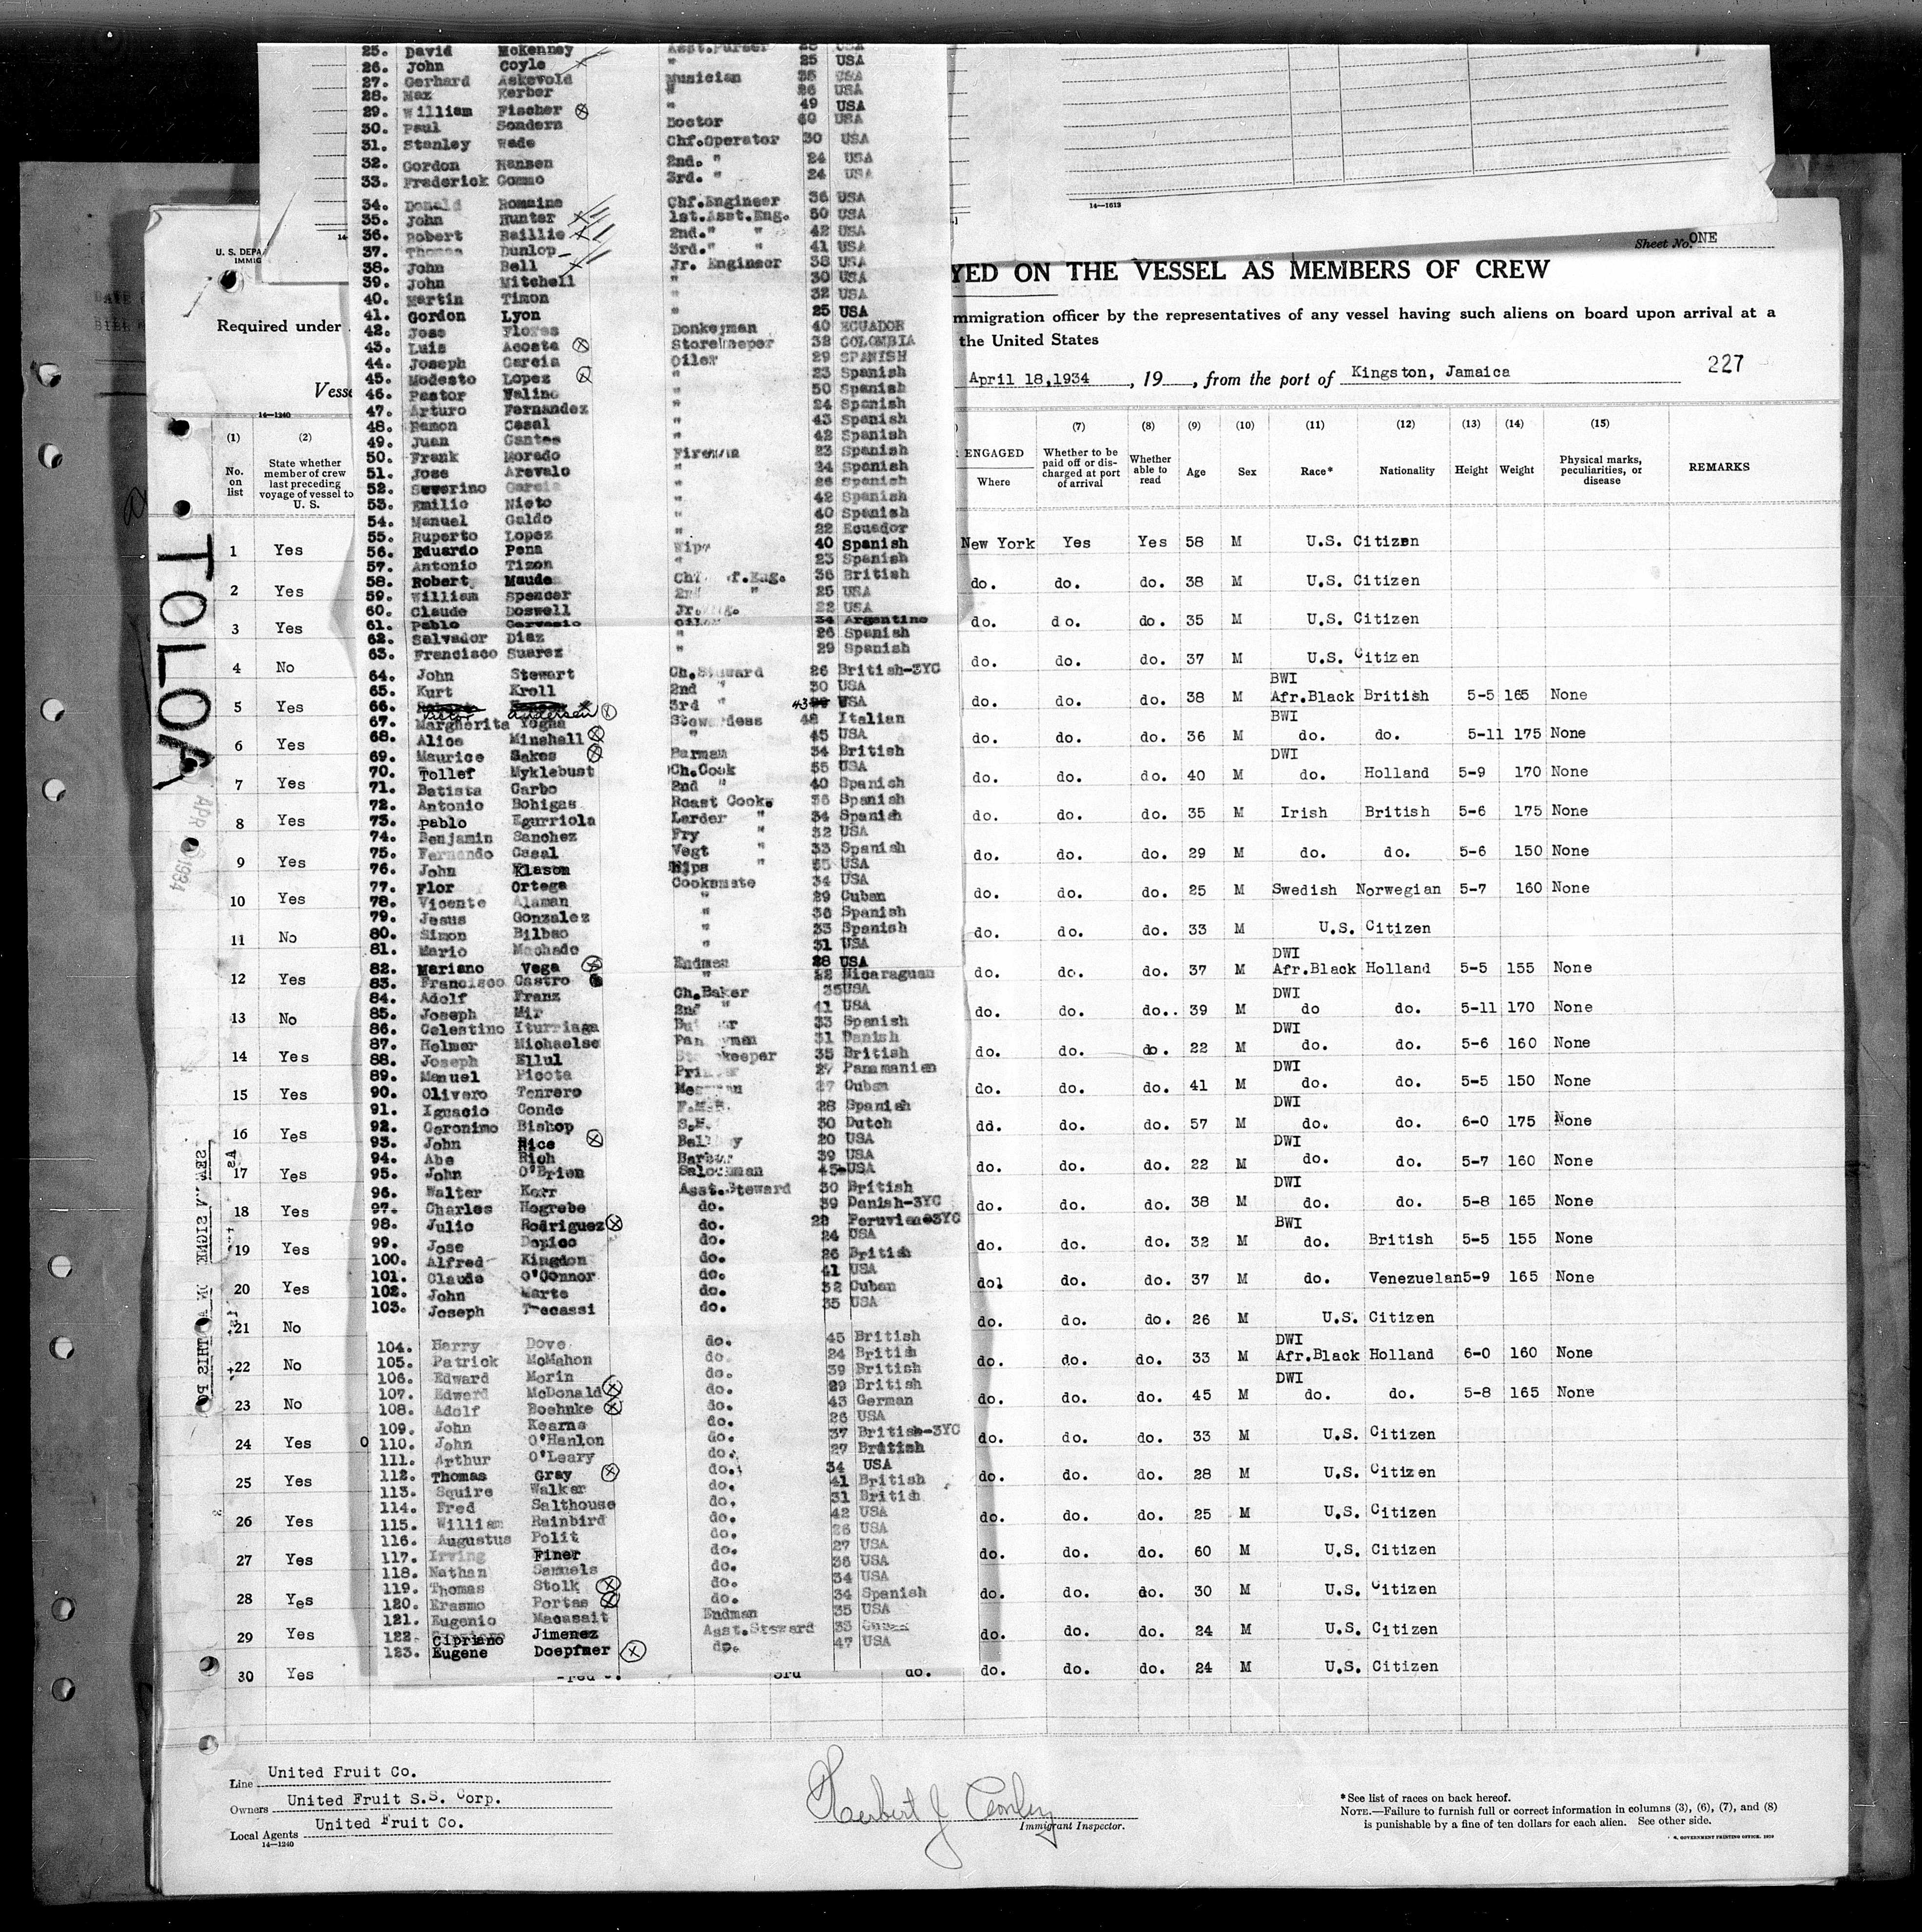 25. David McKenney Asst.Purser 28 USA
26. John Coyle " 25 USA
27. Gerhard Askevold Musician 35 USA
28. Max Kerber " 26 USA
29. William Fischer " 49 USA
30. Paul Sondern Doctor 60 USA
31. Stanley Wade Chf.Operator 30 USA
32. Gordon Hansen 2nd. " 24 USA
33. Frederick Gommo 3rd. " 24 USA
34. Donald Romaine Chf.Engineer 36 USA
35. John Hunter 1st.Asst.Eng. 50 USA
36. Robert Baillie 2nd." " 42 USA
37. Thomas Dunlop 3rd." " 41 USA
38. John Bell Jr. Engineer 38 USA
39. John Mitchell " 30 USA
40. Martin Timon " 32 USA
41. Gordon Lyon " 25 USA
42. Jose Flores Donkeyman 40 ECUADOR
43. Luis Acosta Storekeeper 32 COLOMBIA
44. Joseph Garcia Oiler 29 SPANISH
45. Modesto Lopez " 23 Spanish
46. Pastor " 50 Spanish
47. Arturo Fernandez " 24 Spanish
48. Ramon Casal " 43 Spanish
49. Juan Santos " 42 Spanish
50. Frank Morado Fireman 23 Spanish
51. Jose Arevalo " 24 Spanish
52. Severino Garcia " 26 Spanish
53. Emilio Nieto " 42 Spanish
54. Manuel Galdo " 40 Spanish
55. Ruperto Lopez " 22 Ecuador
56. Eduardo Pena 40 Spanish
57. Antonio Tizon " 23 Spanish
58. Robert Maude 36 British
59. William Spencer " 25 USA
60. Claude Doswell 22 USA
61. Pablo Gervasio Oiler 34 Argentino
62. Salvador Diaz " 26 Spanish
63. Francisco Suarez " 29 Spanish
64. John Stewart Ch.Steward 26 British-3YC
65. Kurt Kroll 2nd " 30 USA
66. Victor Andersen 3rd " 43 USA
67. Margherita Yogna Stewardess 48 Italian
68. Alice Minshall " 45 USA
69. Maurice Sakes Barman 34 British
70. Tollef Myklebust Ch.Cook 55 USA
71. Batista Carbo 2nd " 40 Spanish
72. Antonio Bohigas Roast Cook. 36 Spanish
73. Pablo Egurriola Larder " 34 Spanish
74. Benjamin Sanchez Fry " 32 USA
75. Fernando Casal Vegt " 33 Spanish
76. John Klason " 35 USA
77. Flor Ortega Cooksmate 34 USA
78. Vicente Alaman " 29 Cuban
79. Jesus Gonzalez " 36 Spanish
80. Simon Bilbao " 33 Spanish
81. Mario Machado " 31 USA
82. Mariano Vega Endman 28 USA
83. Francisco Castro " Nicaraguan
84. Adolf Franz Ch.Baker 35USA
85. Joseph Mir 2nd " 41 USA
86. Celestino Iturriaga 33 Spanish
87. Holmer Michaelse 31 Danish
88. Joseph Ellul 35 British
89. Manuel Picota Printer 27 Panamanian
90. Olivero Tenrero Messman 27 Cuban
91. Ignacio Conde 28 Spanish
92. Geronimo Bishop 30 Dutch
93. John Rice Bellboy 20 USA
94. Abe Rich Barber 39 USA
95. John O'Brien Salonman 45 USA
96. Walter Kerr Asst.Steward 30 British
97. Charles Hogrebe do. 39 Danish-3YC
98. Julio Rodriguez do. 28 Peruvian-3YC
99. Jose Dopico do. 24 USA
100. Alfred Kingdon do. 26 British
101. Claude O'Connor do. 41 USA
102. John Marte do. 32 Cuban
103. Joseph Trecassi do. 35 USA
104. Harry Dove do. 45 British
105. Patrick McMahon do. 24 British
106. Edward Morin do. 39 British
107. Edward McDonald do. 29 British
108. Adolf Boehnke do. 43 German
109. John Kearns do. 26 USA
110. John O'Hanlon do. 37 British-3YC
111. Arthur O'Leary do. 27 British
112. Thomas Gray do. 34 USA
113. Squire Walker do. 41 British
114. Fred Salthouse do. 31 British
115. William Rainbird do. 42 USA
116. Augustus Polit do. 26 USA
117. Irving Finer do. 27 USA
118. Nathan Samuels do. 36 USA
119. Thomas Stolk do. 34 USA
120. Erasmo Portas do. 34 Spanish
121. Eugenio Macasait Endman 35 USA
122. Cipriano Jimenez Asst.Steward 33 Cuban
123. Eugene Doepfner do. 47 USA
14—1613
U. S. DEPA
IMMIG
Sheet No. ONE
YED ON THE VESSEL AS MEMBERS OF CREW
Required under
mmigration officer by the representatives of any vessel having such aliens on board upon arrival at a
the United States
227
Vesse
April 18,1934, 19 , from the port of Kingston, Jamaica
14—1240
TOLOA
APR 1934
(1) (2) (7) (8) (9) (10) (11) (12) (13) (14) (15)
No. on list
State whether member of crew last preceding voyage of vessel to U. S.
ENGAGED
Where
Whether to be paid off or discharged at port of arrival
Whether able to read
Age Sex Race* Nationality Height Weight
Physical marks, peculiarities, or disease
REMARKS
1 Yes New York Yes Yes 58 M U.S. Citizen
2 Yes do. do. do. 38 M U.S. Citizen
3 Yes do. do. do. 35 M U.S. Citizen
4 No do. do. do. 37 M U.S. Citizen
BWI
5 Yes do. do. do. 38 M Afr.Black British 5-5 165 None
BWI
6 Yes do. do. do. 36 M do. do. 5-11 175 None
DWI
7 Yes do. do. do. 40 M do. Holland 5-9 170 None
8 Yes do. do. do. 35 M Irish British 5-6 175 None
9 Yes do. do. do. 29 M do. do. 5-6 150 None
10 Yes do. do. do. 25 M Swedish Norwegian 5-7 160 None
11 No do. do. do. 33 M U.S. Citizen
DWI
12 Yes do. do. do. 37 M Afr.Black Holland 5-5 155 None
DWI
13 No do. do. do.. 39 M do do. 5-11 170 None
DWI
14 Yes do. do. do. 22 M do. do. 5-6 160 None
DWI
15 Yes do. do. do. 41 M do. do. 5-5 150 None
DWI
16 Yes dd. do. do. 57 M do. do. 6-0 175 None
DWI
17 Yes do. do. do. 22 M do. do. 5-7 160 None
DWI
18 Yes do. do. do. 38 M do. do. 5-8 165 None
BWI
19 Yes do. do. do. 32 M do. British 5-5 155 None
20 Yes dol do. do. 37 M do. Venezuelan 5-9 165 None
21 No do. do. do. 26 M U.S. Citizen
DWI
22 No do. do. do. 33 M Afr.Black Holland 6-0 160 None
DWI
23 No do. do. do. 45 M do. do. 5-8 165 None
24 Yes do. do. do. 33 M U.S. Citizen
25 Yes do. do. do. 28 M U.S. Citizen
26 Yes do. do. do. 25 M U.S. Citizen
27 Yes do. do. do. 60 M U.S. Citizen
28 Yes do. do. do. 30 M U.S. Citizen
29 Yes do. do. do. 24 M U.S. Citizen
30 Yes 3rd do. do. do. do. 24 M U.S. Citizen
Line United Fruit Co.
Owners United Fruit S.S. Corp.
Local Agents United Fruit Co.
14—1240
Herbert J Conley
Immigrant Inspector.
*See list of races on back hereof.
NOTE.—Failure to furnish full or correct information in columns (3), (6), (7), and (8)
is punishable by a fine of ten dollars for each alien. See other side.